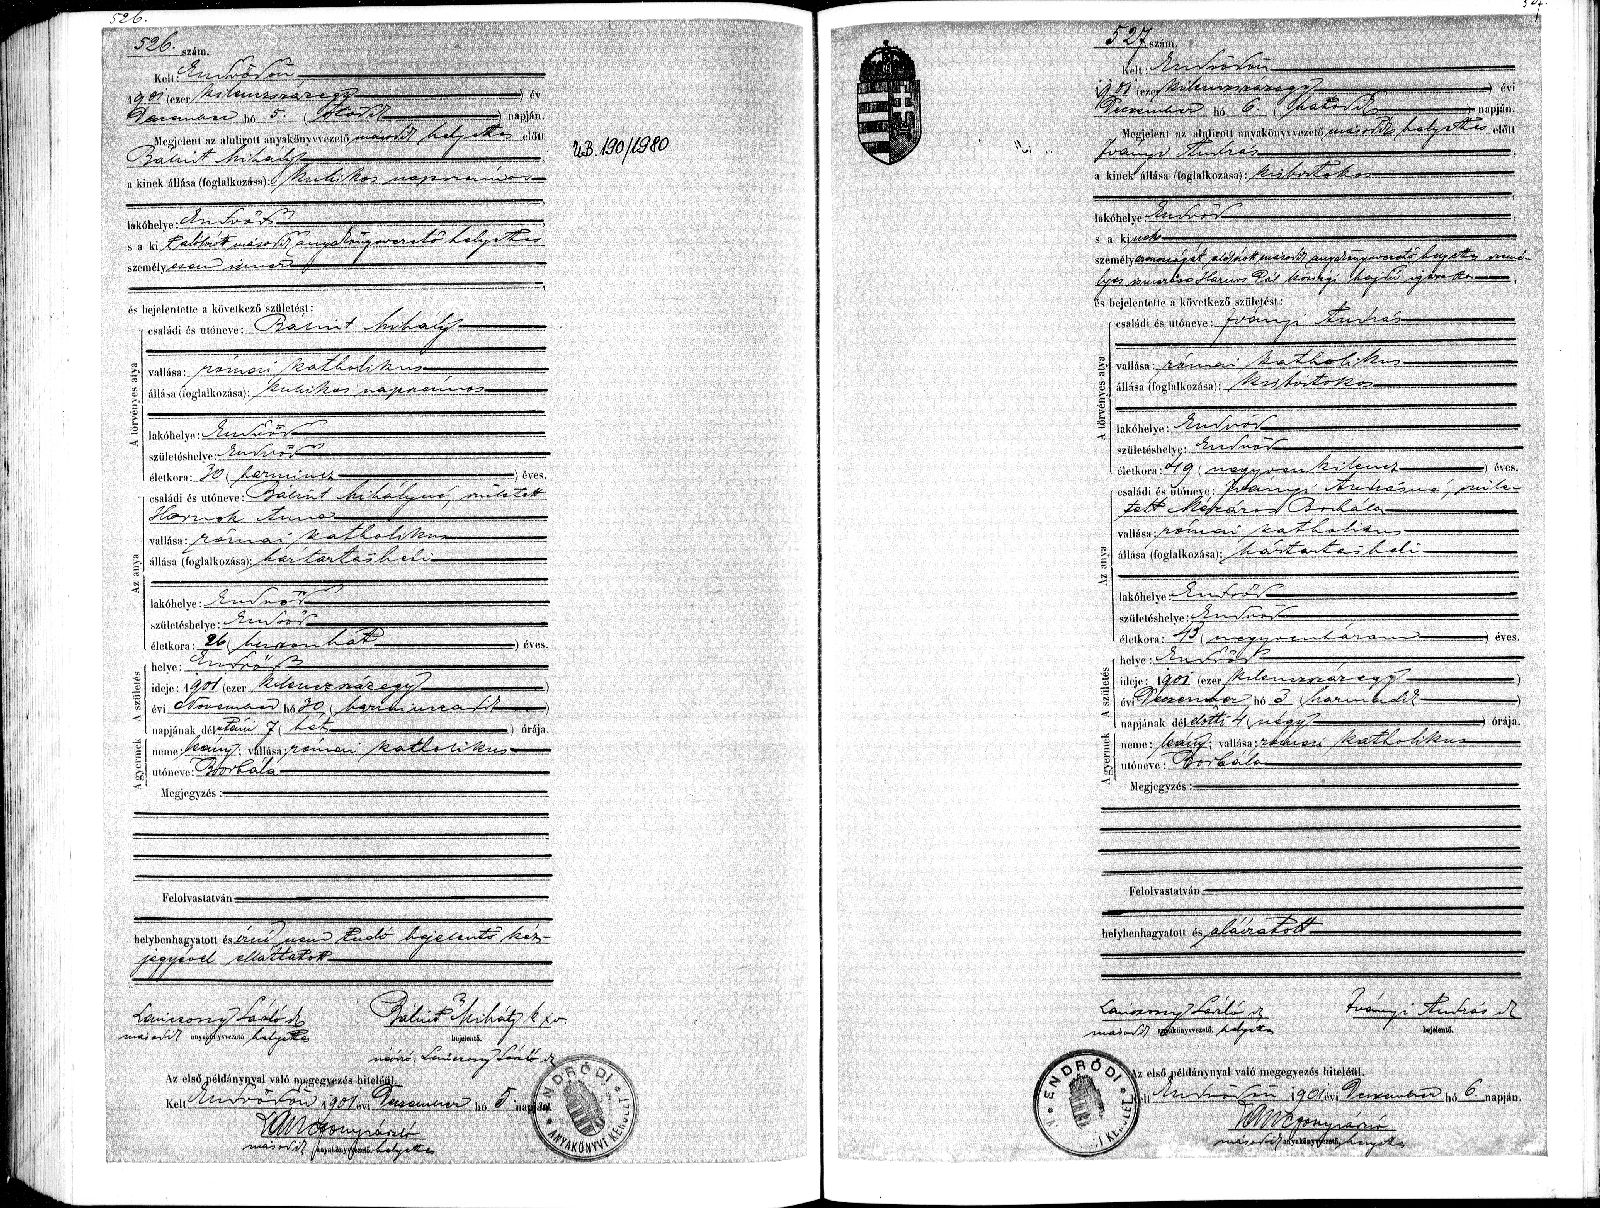 526.
526. szám.
Kelt: Endrődön
1901 (ezer kilenczszázegy) év
December hó 5. (ötödik) napján.
Megjelent az alulirott anyakönyvvezető második helyettes előtt
Bálint Mihály
a kinek állása (foglalkozása): kubikos napszámos
lakóhelye: Endrőd
s a kit alólírott másodk anyakönyvvezető helyettes
személyesen ismer
és bejelentette a következő születést:
A törvényes atya
családi és utóneve: Bálint Mihály
vallása: római katholikus
állása (foglalkozása): kubikos napszámos
lakóhelye: Endrőd
születéshelye: Endrőd
életkora: 30 (harmincz) éves.
Az anya
családi és utóneve: Bálint Mihályné, született
Hornok Anna
vallása: római katholikus
állása (foglalkozása): háztartásbeli
lakóhelye: Endrőd
születéshelye: Endrőd
életkora: 26 (huszonhat) éves.
A születés
helye: Endrőd
ideje: 1901 (ezer kilenczszázegy)
évi November hó 30 (harminczadik)
napjának délután 7 (hét) órája.
A gyermek
neme: leány; vallása: római katholikus
utóneve: Borbála
Megjegyzés:
Felolvastatván
helybenhagyatott és írni nem tudó bejelentő kéz-
jegyével elláttatott
Lanczsony László sk Bálint Mihály k x v.
másodk anyakönyvvezető helyettes bejelentő.
névíró Lanczsony László sk
Az első példánynyal való megegyezés hiteléül.
Kelt Endrődön 1901 évi December hó 5. napján
Lanczsony László
másodk anyakönyvvezető helyettes
ENDRŐDI
ANYAKÖNYVI KERÜLET
43.190/1980
527 szám.
Kelt: Endrődön
1901 (ezer kilenczszázegy) évi
December hó 6 (hatodik) napján.
Megjelent az alulirott anyakönyvvezető másodk helyettes előtt
Iványi András
a kinek állása (foglalkozása): kisbirtokos
lakóhelye: Endrőd
s a kinek
személyazonosságát alólírott másodk anyakönyvvezető helyettes szemé-
lyes ismerőse Pál községi hajdú igazolta
és bejelentette a következő születést:
A törvényes atya
családi és utóneve: Iványi András
vallása: római katholikus
állása (foglalkozása): kisbirtokos
lakóhelye: Endrőd
születéshelye: Endrőd
életkora: 49 (negyvenkilencz) éves.
Az anya
családi és utóneve: Iványi Andrásné, szüle-
tett Mészáros Borbála
vallása: római katholikus
állása (foglalkozása): háztartásbeli
lakóhelye: Endrőd
születéshelye: Endrőd
életkora: 43 (negyvenhárom) éves.
A születés
helye: Endrőd
ideje: 1901 (ezer kilenczszázegy)
évi December hó 3 (harmadik)
napjának délelőtti 4 (négy) órája.
A gyermek
neme: leány; vallása: római katholikus
utóneve: Borbála
Megjegyzés:
Felolvastatván
helybenhagyatott és aláíratott
Lanczsony László sk Iványi András sk
másodk anyakönyvvezető helyettes bejelentő.
Az első példánynyal való megegyezés hiteléül.
Kelt Endrődön 1901 évi December hó 6. napján.
Lanczsony László
másodk anyakönyvvezető helyettes
ENDRŐDI